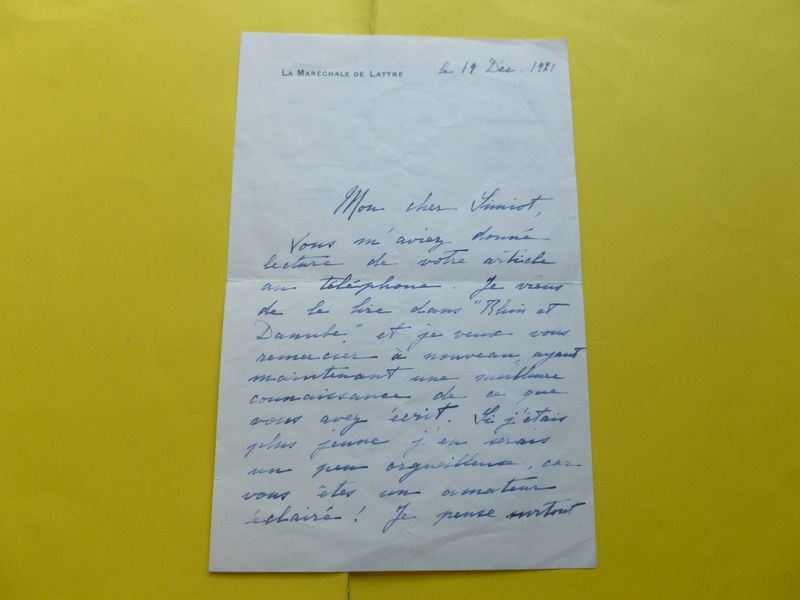 LA MARÉCHALE DE LATTRE
le 19 Déc. 1981
Mon cher Simiot,
Vous m'aviez donné
lecture de votre article
au téléphone. Je viens
de le lire dans "Rhin et
Danube" et je veux vous
remercier à nouveau, ayant
maintenant une meilleure
connaissance de ce que
vous avez écrit. Si j'étais
plus jeune j'en serais
un peu orgueilleuse, car
vous êtes un amateur
éclairé ! Je pense surtout